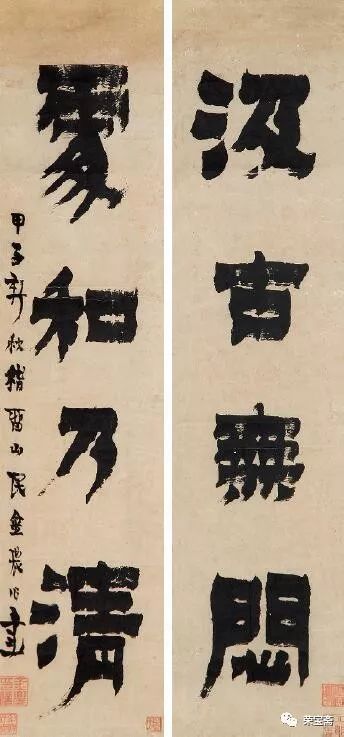 汲古無悶
處和乃清
甲子新秋稽留山民金農作書
荣宝斋